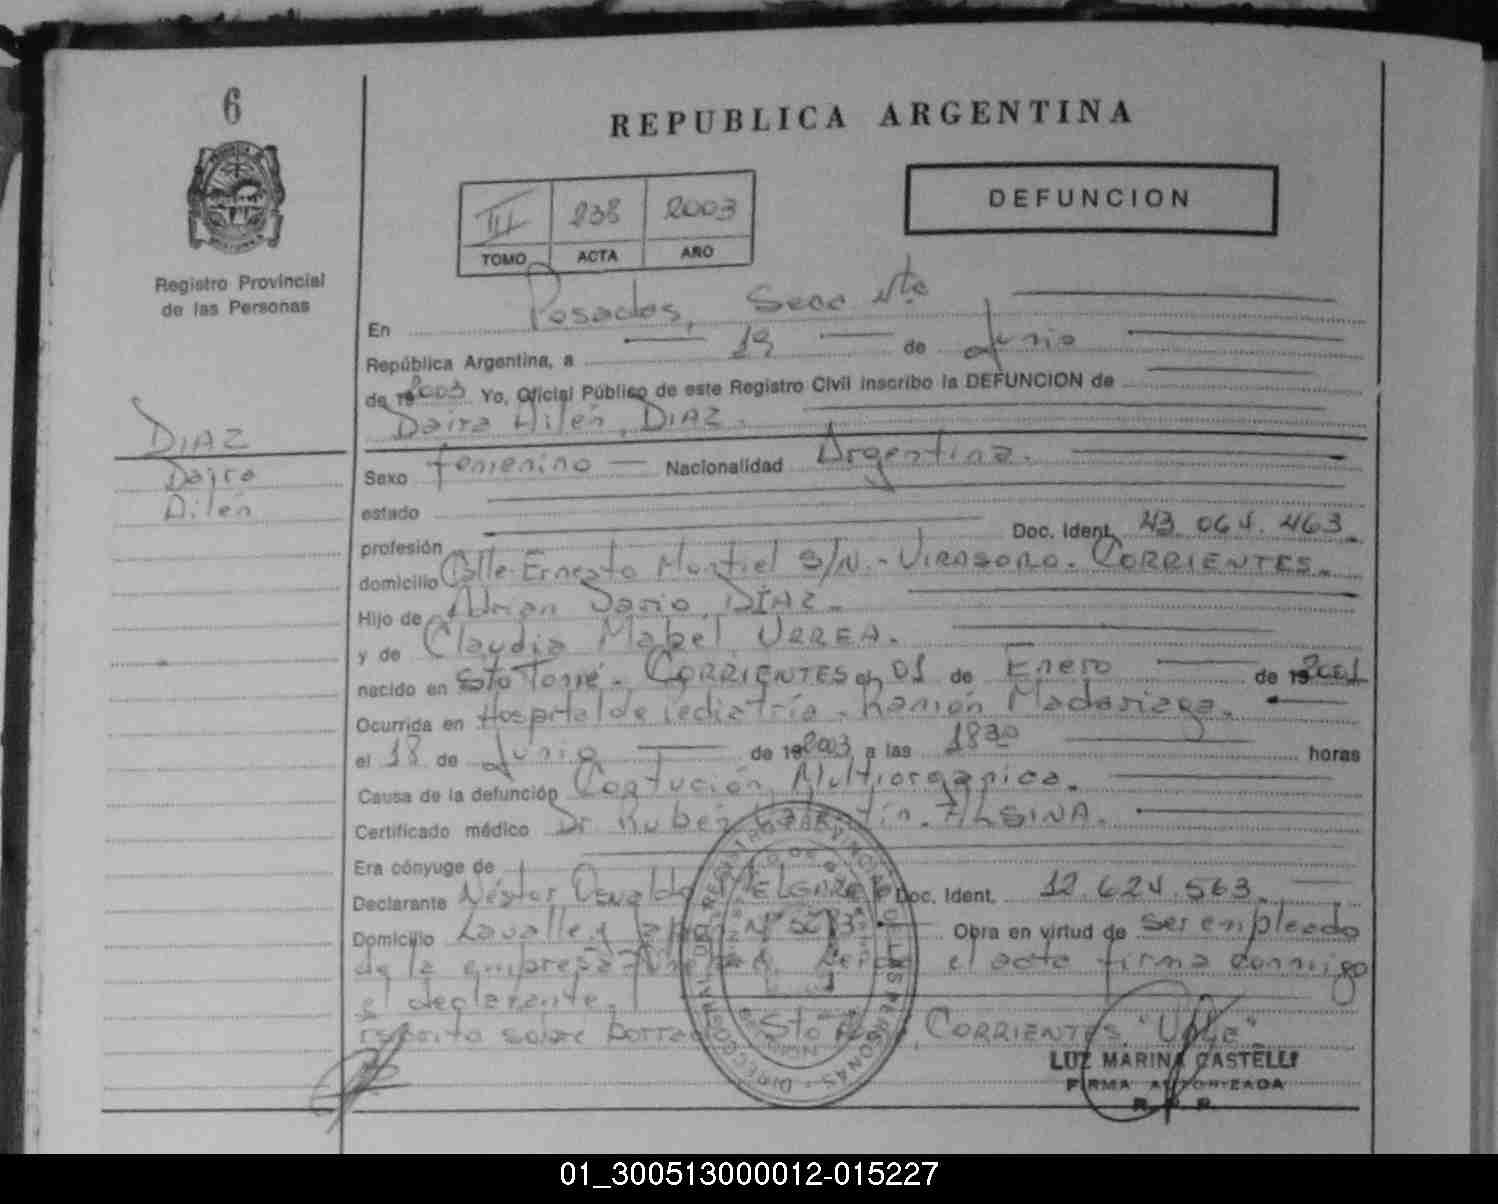 6
REPUBLICA ARGENTINA
DEFUNCION
III 238 2003
TOMO ACTA AÑO
Registro Provincial
de las Personas
En Posadas, Secc
República Argentina, a 19 de Junio
de 19 2003 Yo, Oficial Público de este Registro Civil inscribo la DEFUNCION de
Daira Ailén DIAZ.
DIAZ
Daira
Ailén
Sexo femenino Nacionalidad Argentina.
estado
profesión Doc. Ident. 43.064.463
domicilio Calle Ernesto Montiel S/N.- VIRASORO. CORRIENTES.
Hijo de Adrian Dario DÍAZ.
y de Claudia Mabel URREA.
nacido en Sto Tomé. CORRIENTES en 01 de Enero de 19 2001
Ocurrida en Hospital de Pediatría. Ramón Madariaga.
el 18 de Junio de 19 2003 a las 1830 horas
Causa de la defunción Multiorganica.
Certificado médico Dr. Rubén ALSINA.
Era cónyuge de
Declarante Néstor Osvaldo Doc. Ident. 12.624.563
Domicilio Lavalle y Nº Obra en virtud de ser empleado
de la empresa el acto firma conmigo
el declarante.
escrito sobre borrado Sto CORRIENTES. "Vale"
LUZ MARINA CASTELLI
FIRMA AUTORIZADA
R. P. P.
01_300513000012-015227